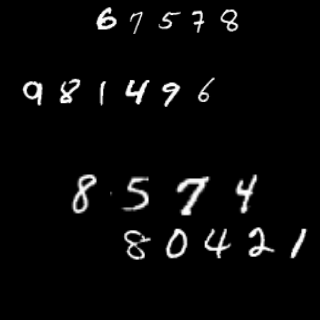 67578
981496
8574
80421